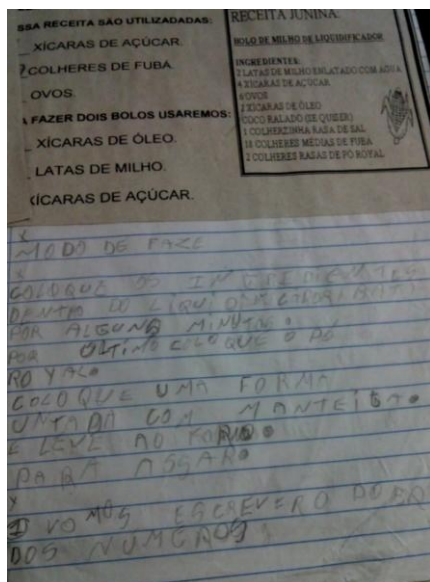 SSA RECEITA SÃO UTILIZADADAS:
XÍCARAS DE AÇÚCAR.
COLHERES DE FUBÁ.
OVOS.
FAZER DOIS BOLOS USAREMOS:
XÍCARAS DE ÓLEO.
LATAS DE MILHO.
XÍCARAS DE AÇÚCAR.
RECEITA JUNINA:
BOLO DE MILHO DE LIQUIDIFICADOR
INGREDIENTES:
2 LATAS DE MILHO ENLATADO COM ÁGUA
4 XÍCARAS DE AÇÚCAR
6 OVOS
2 XÍCARAS DE ÓLEO
COCO RALADO (SE QUISER)
1 COLHERZINHA RASA DE SAL
18 COLHERES MÉDIAS DE FUBÁ
2 COLHERES RASAS DE PÓ ROYAL
X
MODO DE FAZE
X
COLOQUE OS
DENTRO DO
POR ALGUNS
POR ÚLTIMO COLOQUE O PÓ
ROYAL.
COLOQUE UMA FORMA
UNTADA COM MANTEIGA.
E LEVE AO FORNO.
PARA ASSAR.
X
VOMOS ESCREVER O DOBRO
DOS